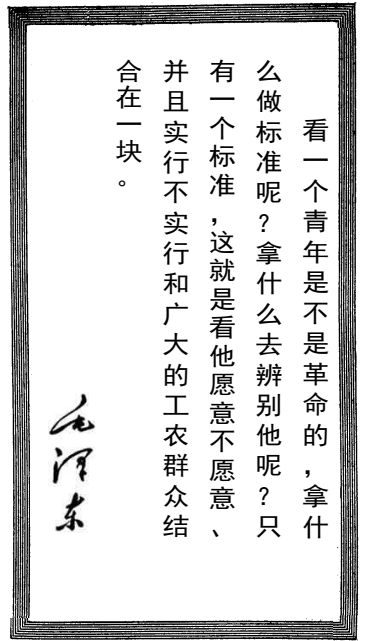 看一个青年是不是革命的，拿什
么做标准呢？拿什么去辨别他呢？只
有一个标准，这就是看他愿意不愿意、
并且实行不实行和广大的工农群众结
合在一块。
毛泽东